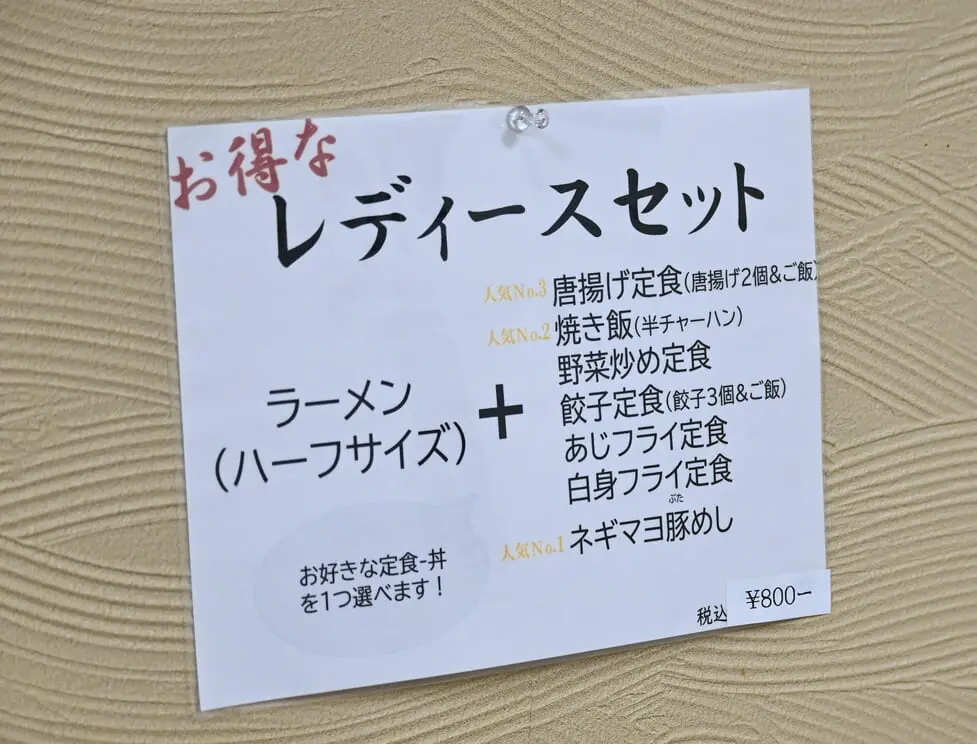 お得な
レディースセット
人気No.3 唐揚げ定食(唐揚げ2個&ご飯)
人気No.2 焼き飯(半チャーハン)
野菜炒め定食
餃子定食(餃子3個&ご飯)
あじフライ定食
白身フライ定食
ぶた
人気No.1 ネギマヨ豚めし
ラーメン
(ハーフサイズ)
+
お好きな定食-丼
を1つ選べます!
税込 ¥800ー